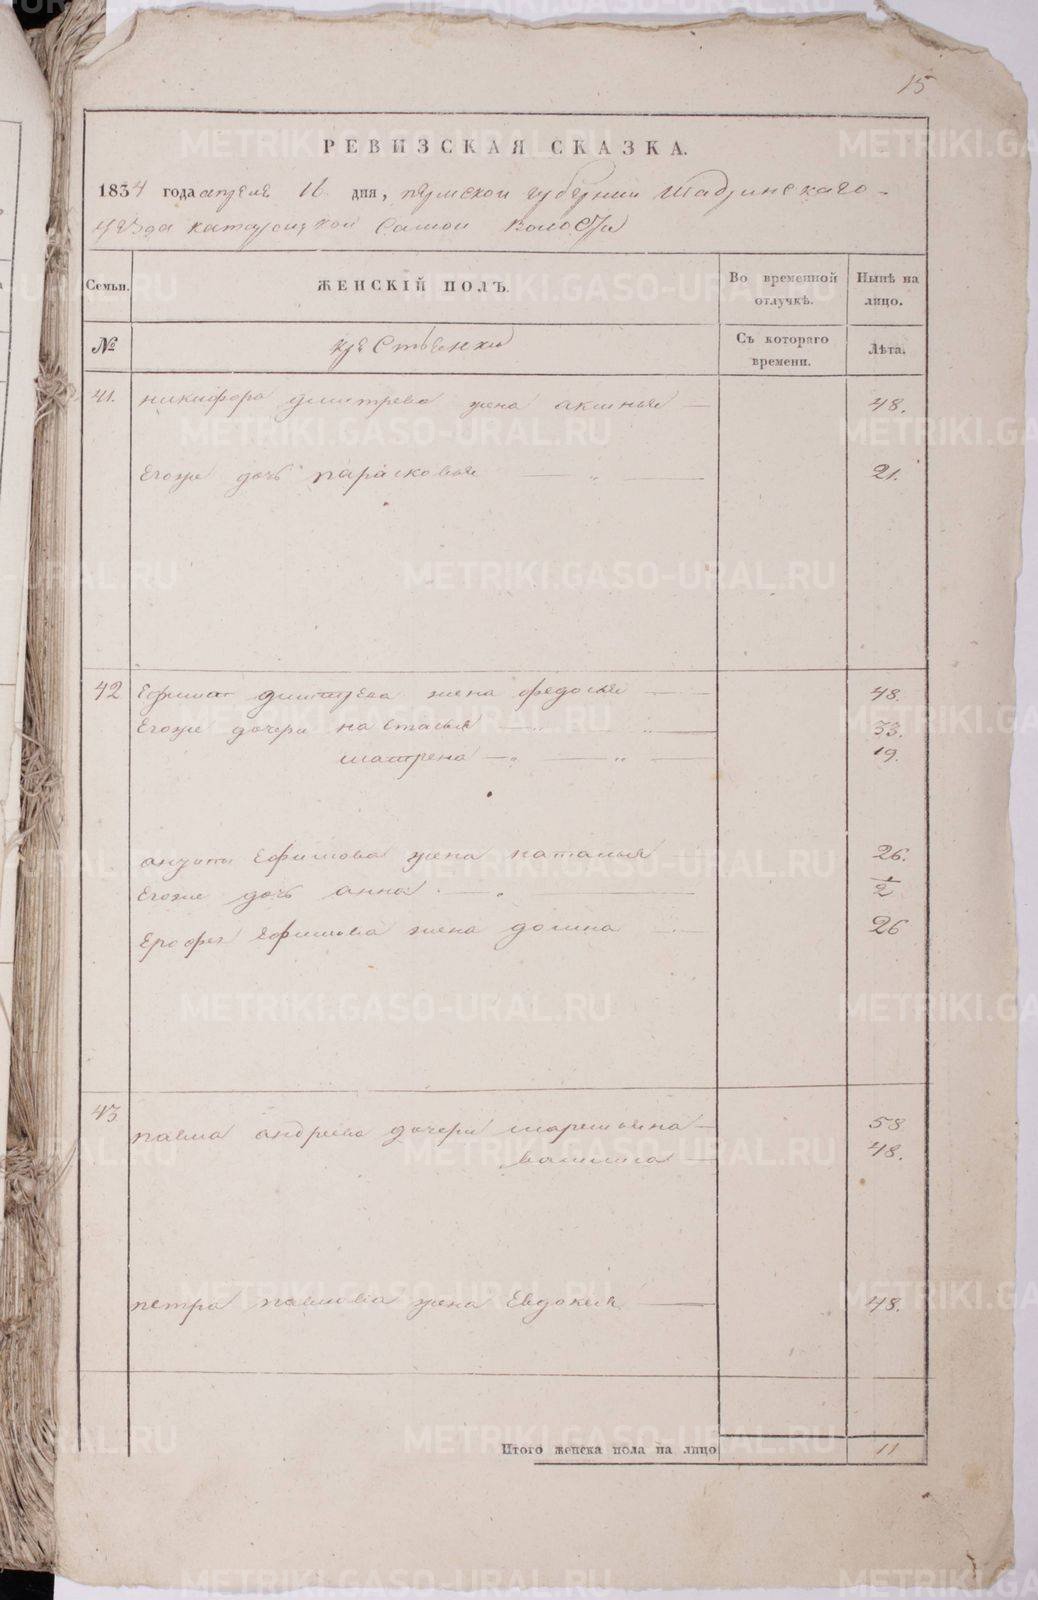 15
РЕВИЗСКАЯ СКАЗКА.
1834 года апреля 16 дня, пермской губернии Шадринскаго
уезда катайской Самой Волости
Семьи. ЖЕНСКІЙ ПОЛЪ. Во временной отлучкѣ. Нынѣ на лицо.
№ крестьянки Съ котораго времени. Лѣта.
41. никифора дмитрева жена аксинья 48.
Егоже дочь парасковья 21.
42 Ефима дмитрева жена федосья 48.
Егоже дочери настасья 33.
матрена 19.
никиты Ефимова жена наталья 26.
Егоже дочь анна 1/2
Ерофея Ефимова жена домна 26
43 павла андреева дочери маремьяна 58
48.
петра павлова жена Евдокея 48.
Итого женска пола на лицо 11
METRIKI.GASO-URAL.RU